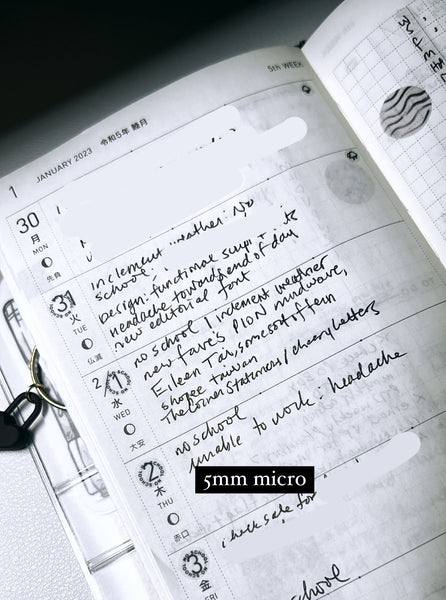 5th WEEK
1 JANUARY 2023 令和5年 睦月
30
月
MON
先負
inclement weather: No
school.
31
火
TUE
仏滅
Design: functional script
headache towards end of day
new editorial font
2
1
水
WED
大安
no school / inclement weather
new faves: PION mudwave,
Eileen Tai, some sort of fern
shopee taiwan
The Corner Stationers / cheery letters
2
木
THU
赤口
no school
unable to work: headache
5mm micro
check sale for
3
金
FRI
school